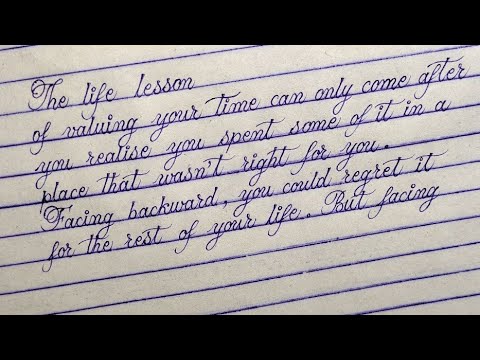 The life lesson
of valuing your time can only come after
you realise you spent some of it in a
place that wasn't right for you.
Facing backward, you could regret it
for the rest of your life. But facing